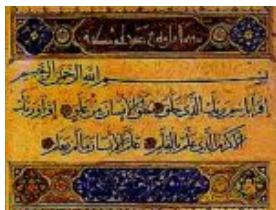 بسم الله الرحمن الرحيم
اقرا باسم ربك الذي خلق خلق الانسان من علق اقرا وربك
الاكرم الذي علم بالقلم علم الانسان ما لم يعلم